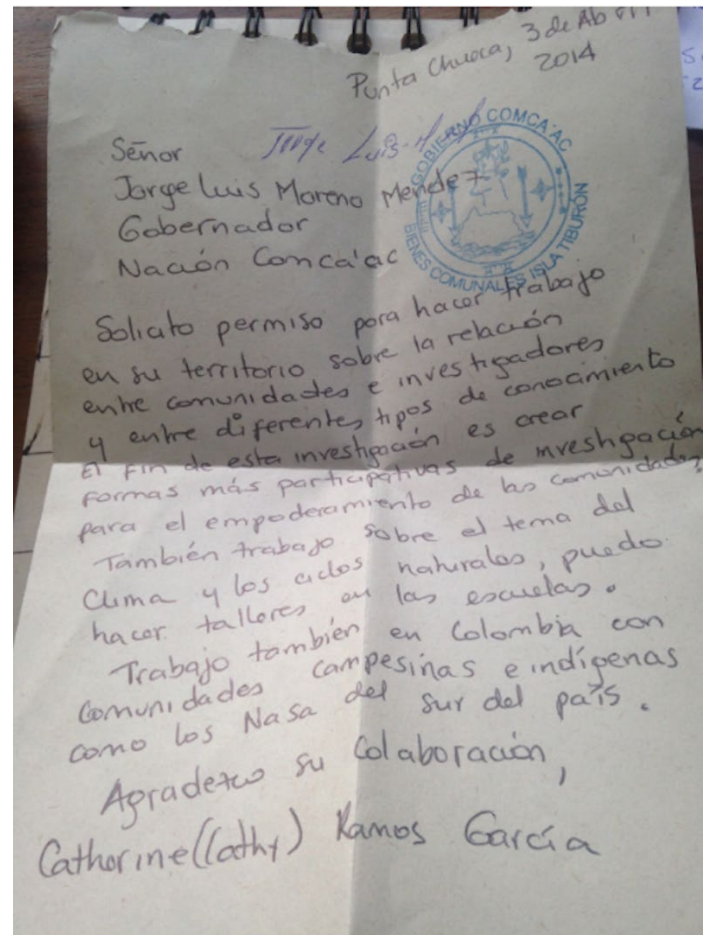 Punta Chueca, 3 de Abril
2014
Jorge Luis M
Señor
Jorge Luis Moreno Mendez
Gobernador
Nación Comca'ac
GOBIERNO COMCA'AC
BIENES COMUNALES ISLA TIBURÓN
Solicito permiso para hacer trabajo
en su territorio sobre la relación
entre comunidades e investigadores
y entre diferentes tipos de conocimiento
El fin de esta investigación es crear
formas más participativas de investigación
para el empoderamiento de las comunidades.
También trabajo sobre el tema del
Clima y los ciclos naturales, puedo
hacer talleres en las escuelas.
Trabajo también en Colombia con
Comunidades campesinas e indígenas
como los Nasa del sur del país.
Agradezco su Colaboración,
Catherine (Cathy) Ramos García